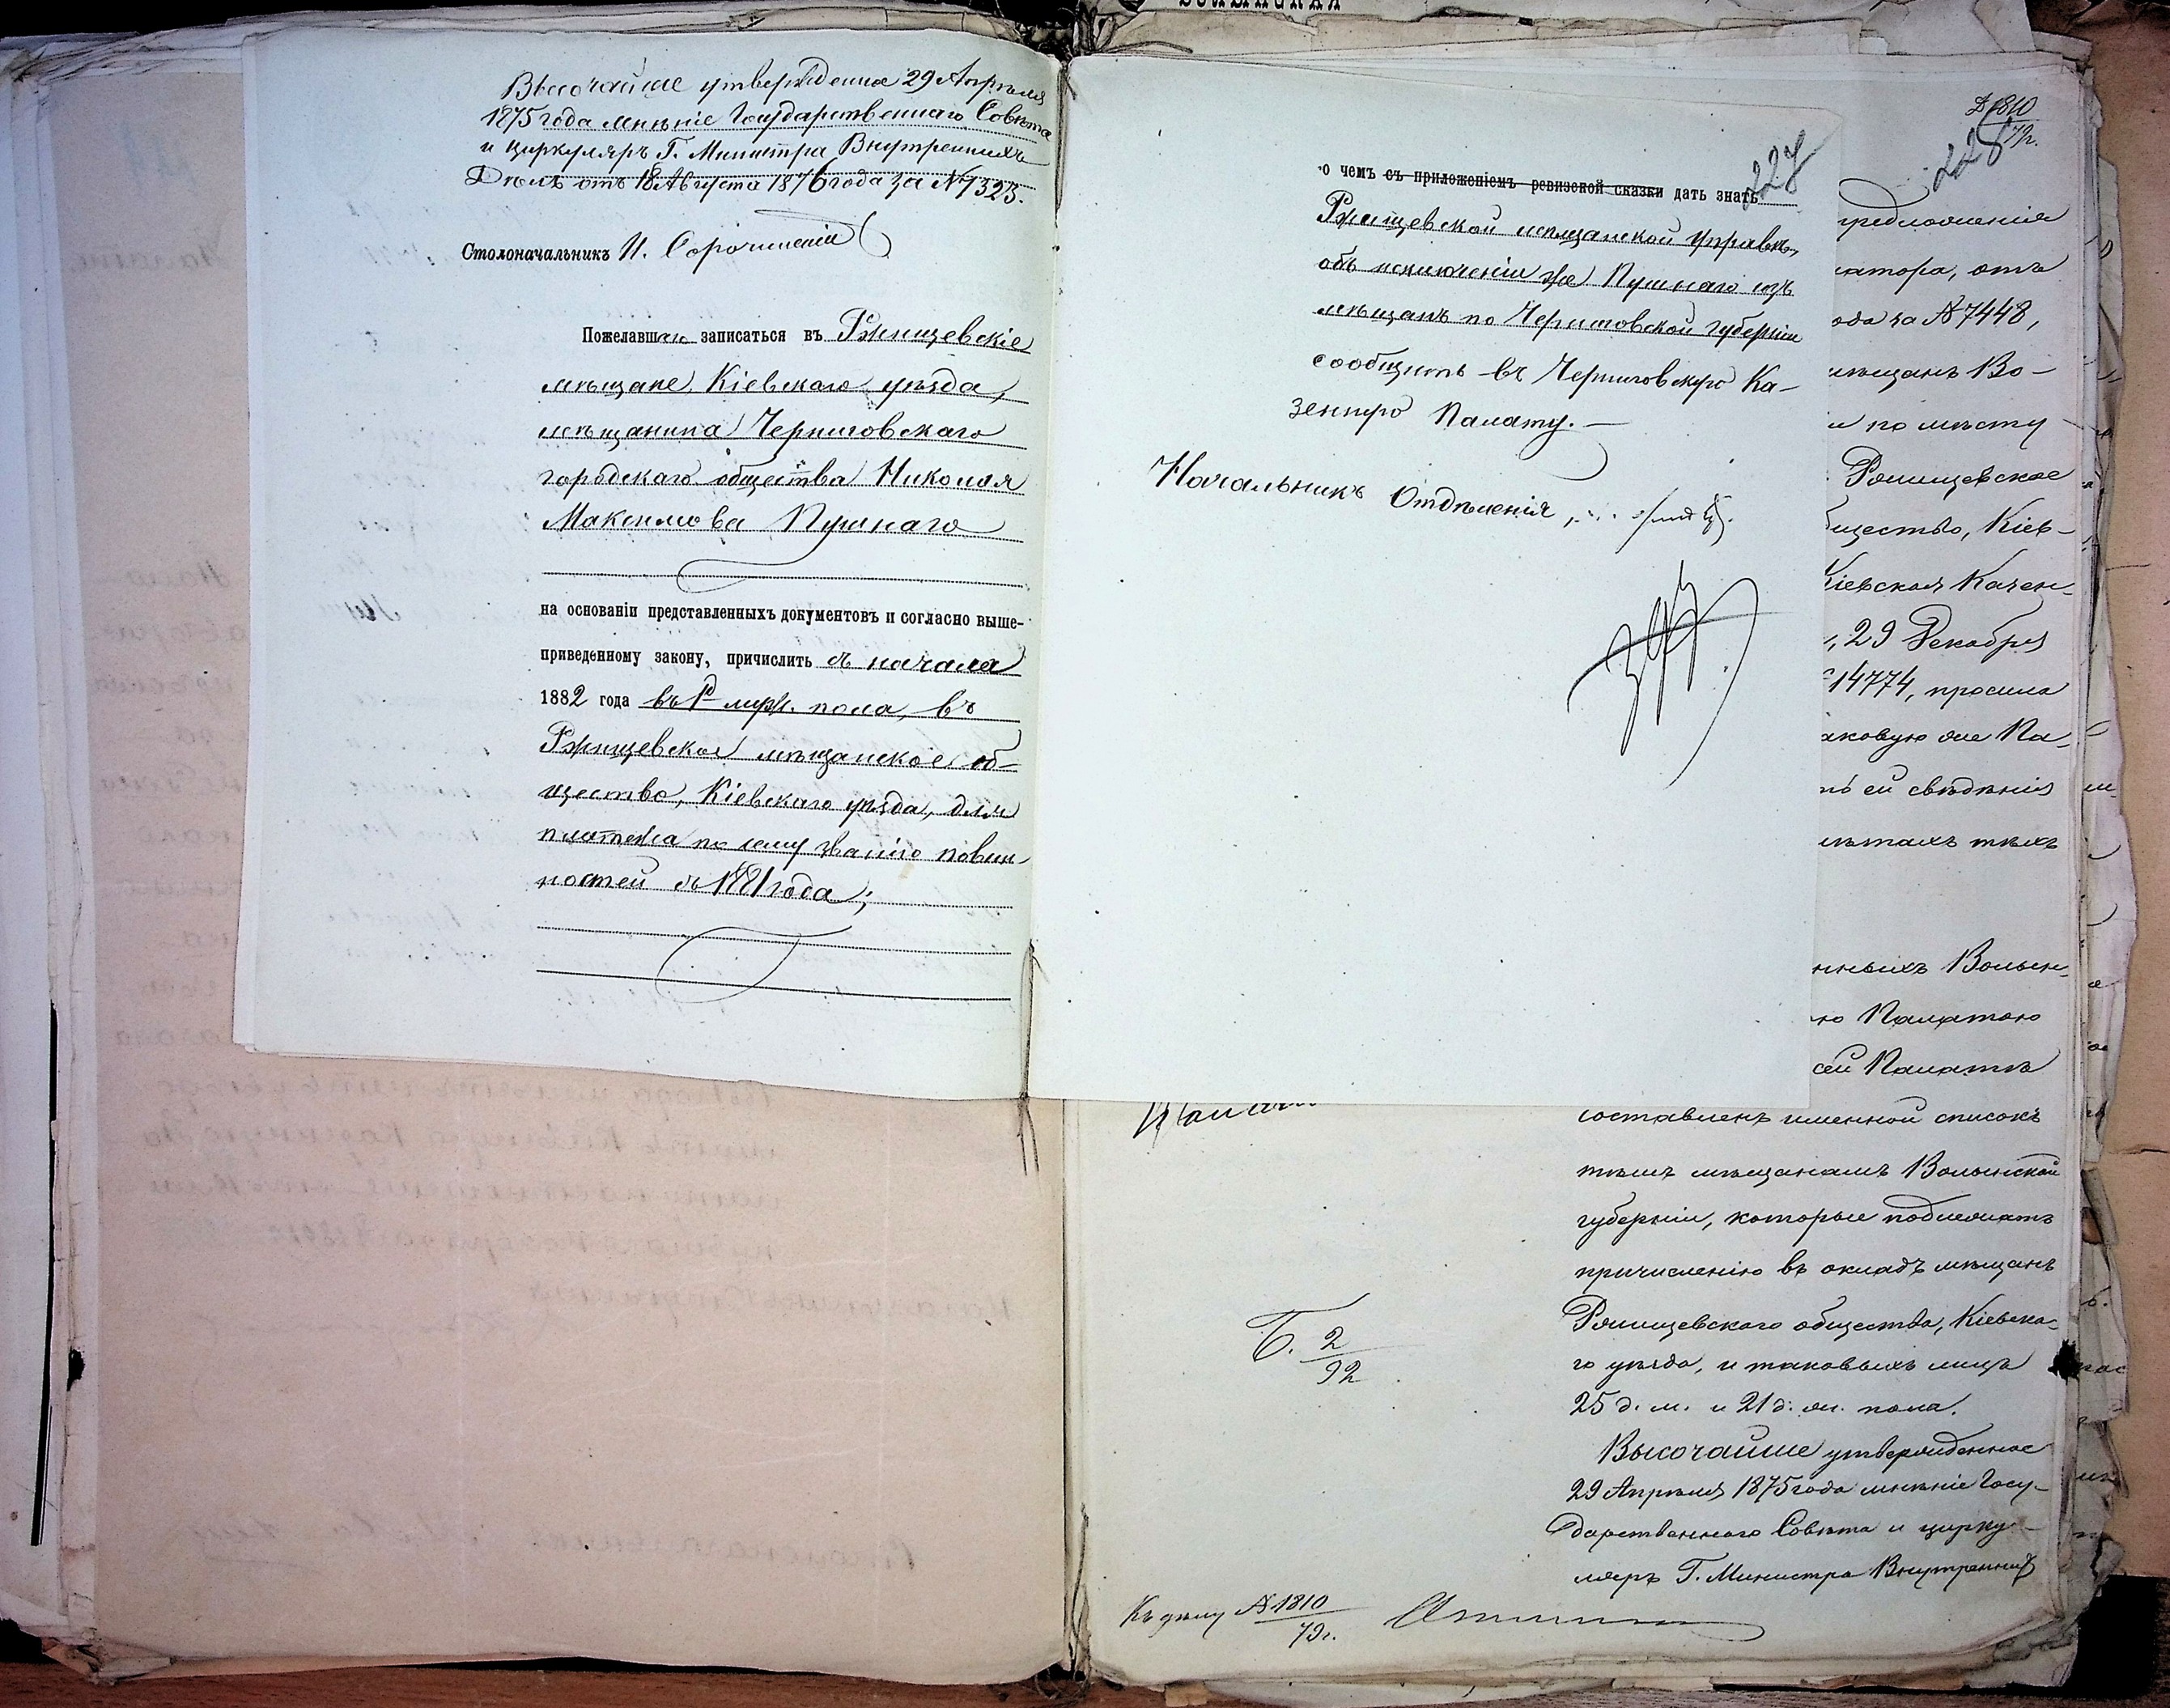 Высочайше утвержденное 29 Апрѣля
1875 года мнѣніе Государственнаго Совѣта
и циркуляръ Г. Министра Внутреннихъ
Дѣлъ отъ 18 Августа 1876 года за № 7323.
Столоначальникъ И.
Пожелавшаго записаться въ Ржищевскіе
мѣщане, Кіевскаго уѣзда,
мѣщанина Черниговскаго
городскаго общества Николая
Максимова Пушнаго
на основаніи представленныхъ документовъ и согласно выше-
приведенному закону, причислить съ начала
1882 года въ 1 д. муж. пола, въ
Ржищевское мѣщанское об-
щество, Кіевскаго уѣзда, для
платежа по сему званію повин-
ностей съ 1881 года;
227
о чемъ съ приложеніемъ ревизской сказки дать знать
Ржищевской мѣщанской управѣ,
объ исключеніи же Пушнаго изъ
мѣщанъ по Черниговской губерніи
сообщить въ Черниговскую Ка-
зенную Палату.
Начальникъ Отдѣленія
Д. 1810
79 г.
228
предложенія
натора, отъ
ода за № 7448,
мѣщанъ Во-
и по мѣсту
Ржищевское
бщество, Кіев-
Кіевская Казен-
, 29 Декабря
14774, просила
аковую же Па-
ть ей свѣдѣнія
лѣтахъ тѣхъ
нныхъ Волын-
ю Палатою
сей Палатѣ
составленъ именной списокъ
тѣмъ мѣщанамъ Волынской
губерніи, которые подлежатъ
причисленію въ окладъ мѣщанъ
Ржищевскаго общества, Кіевска-
го уѣзда, и таковыхъ лицъ
25 д. м. и 21 д. ж. пола.
Высочайше утвержденное
29 Апрѣля 1875 года мнѣніе Госу-
дарственнаго Совѣта и цирку-
ляръ Г. Министра Внутреннихъ
Б. 2
92
Къ дѣлу № 1810
79 г.